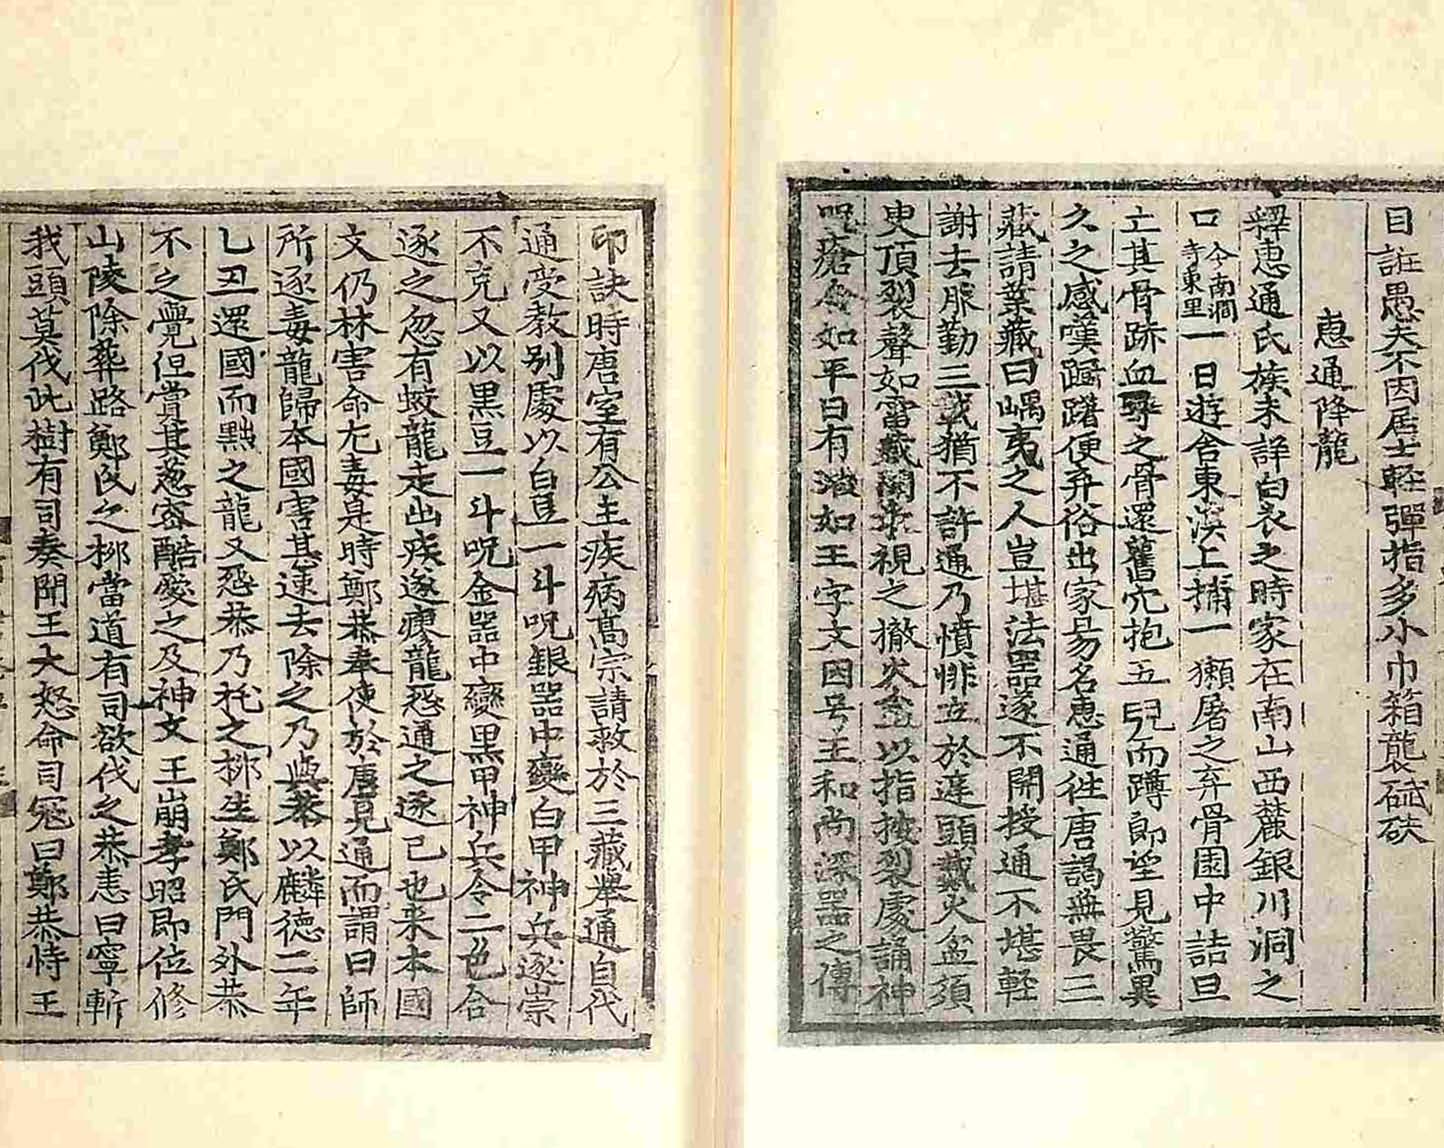 目誑愚夫不因居士軽彈指多小巾箱襲碔砆
惠通降龍
釋惠通氏族未詳白衣之時家在南山西麓銀川洞之
口今南澗寺東里一日遊舍東溪上捕一獺屠之弃骨園中詰旦
亡其骨跡血尋之骨還舊穴抱五兒而蹲郎望見驚異
久之感嘆躕躇便弃俗出家易名惠通徃唐謁無畏三
藏請業藏曰嵎夷之人豈堪法器遂不開授通不堪軽
謝去服勤三載猶不許通乃憤悱立於庭頭戴火盆須
㬰頂裂聲如雷藏聞来視之撤火盆以指按裂處誦神
呪瘡合如平日有瘢如王字文因号王和尚深器之傳
印訣時唐室有公主疾病高宗請救於三藏舉通自代
通受教别處以白豆一斗呪銀器中變白甲神兵逐崇
不克又以黒豆一斗呪金器中變黒甲神兵令二色合
逐之忽有蛟龍走出疾遂瘳龍怨通之逐已也来本國
文仍林害命尤毒是時鄭恭奉使於唐見通而謂曰師
所逐毒龍歸本國害甚速去除之乃與恭以麟德二年
乚丑還國而黜之龍又怨恭乃托之栁生鄭氏門外恭
不之覺但賞其葱密酷愛之及神文王崩孝昭即位修
山陵除葬路鄭氏之栁當道有司欲伐之恭恚曰寧斬
我頭莫伐此樹有司奏聞王大怒命司冦曰鄭恭恃王